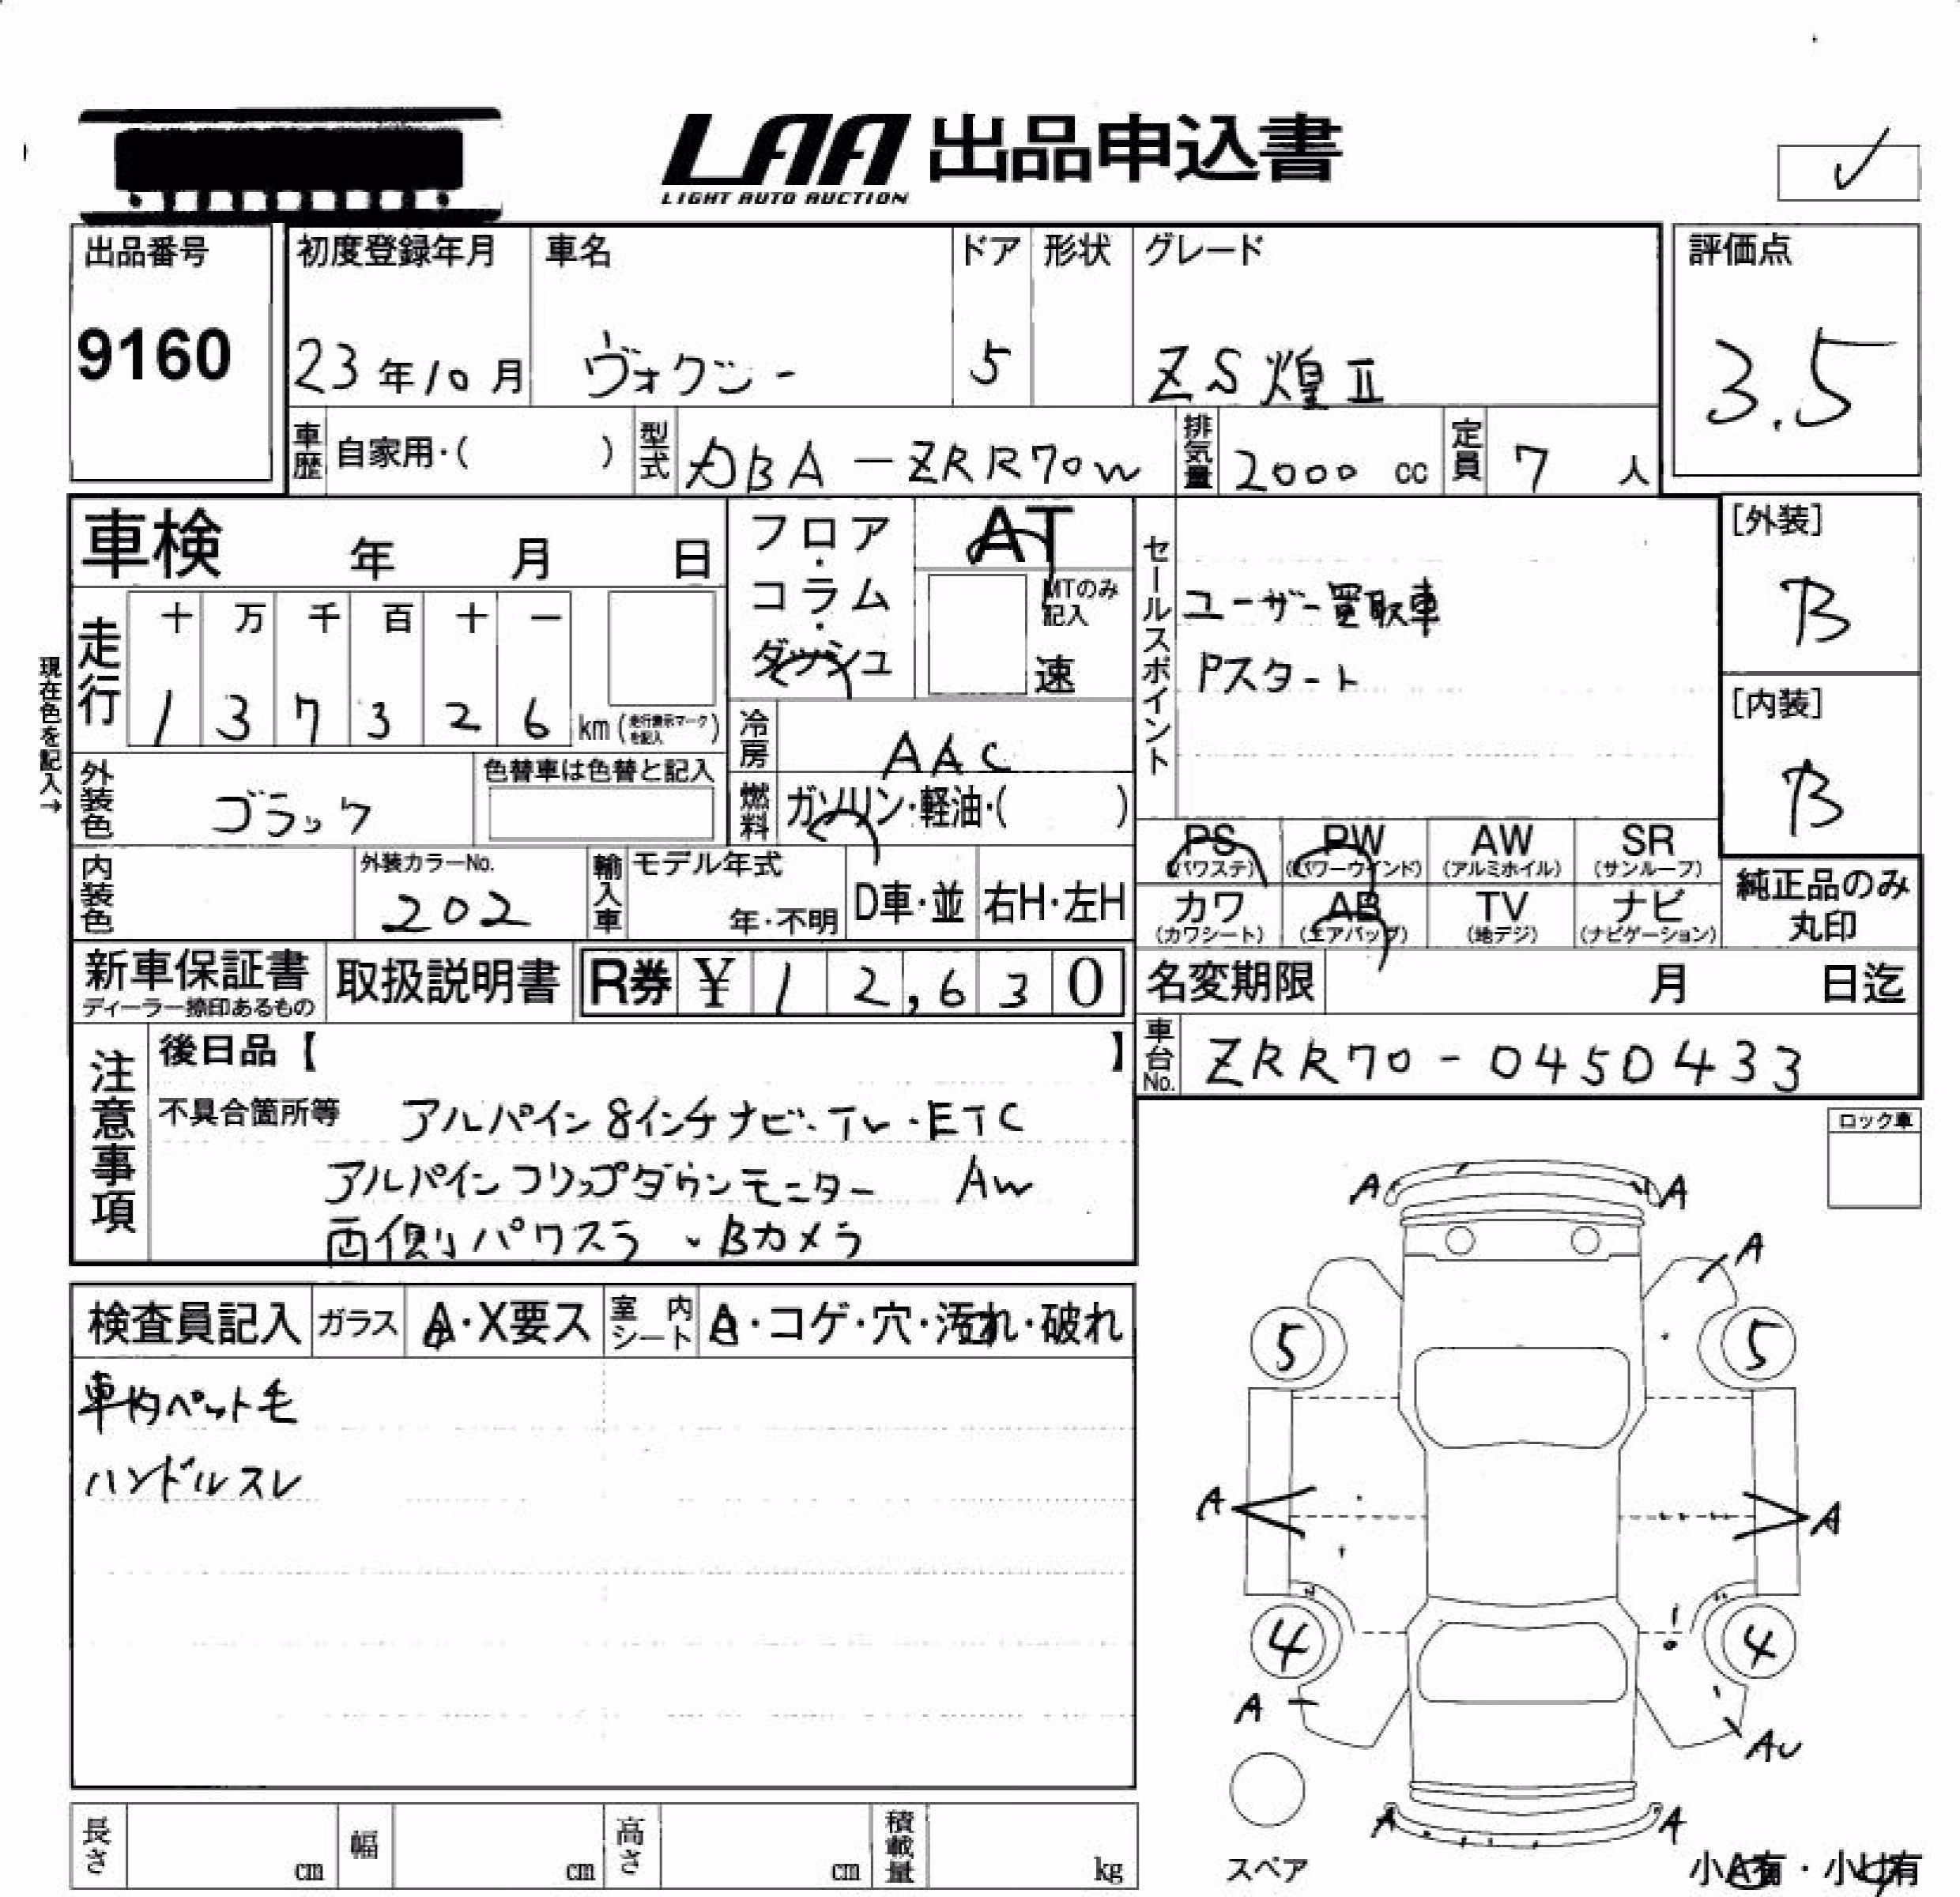 LAA 出品申込書
LIGHT AUTO AUCTION
✓
出品番号
9160
初度登録年月
23年10月
車名
ヴォクシー
ドア
5
形状
グレード
ZS煌Ⅱ
評価点
3.5
車歴 自家用・( )
型式 DBA-ZRR70W
排気量 2000 cc
定員 7 人
車検 年 月 日
フロア・コラム・ダッシュ
AT
MTのみ記入
速
セールスポイント
ユーザー買取車
Pスタート
[外装]
B
[内装]
B
現在色を記入→
走行
十 万 千 百 十 一
1 3 7 3 2 6 km (走行表示マークを記入)
冷房 AAC
外装色 ブラック
色替車は色替と記入
燃料 ガソリン・軽油・( )
PS (パワステ)
PW (パワーウインド)
AW (アルミホイル)
SR (サンルーフ)
内装色
外装カラーNo.
202
輸入車
モデル年式
年・不明
D車・並
右H・左H
カワ (カワシート)
AB (エアバッグ)
TV (地デジ)
ナビ (ナビゲーション)
純正品のみ
丸印
新車保証書
ディーラー捺印あるもの
取扱説明書
R券 ¥ 12,630
名変期限 月 日迄
車台No. ZRR70-0450433
注意事項
後日品【 】
不具合箇所等 アルパイン8インチナビ・TV・ETC
アルパインフリップダウンモニター AW
両側パワスラ・Bカメラ
ロック車
検査員記入
ガラス A・X要ス
室内シート A・コゲ・穴・汚れ・破れ
車内ペット毛
ハンドルスレ
A A
A
5 5
A A
4 4
A AU
A A
スペア
小A有・小U有
長さ cm
幅 cm
高さ cm
積載量 kg